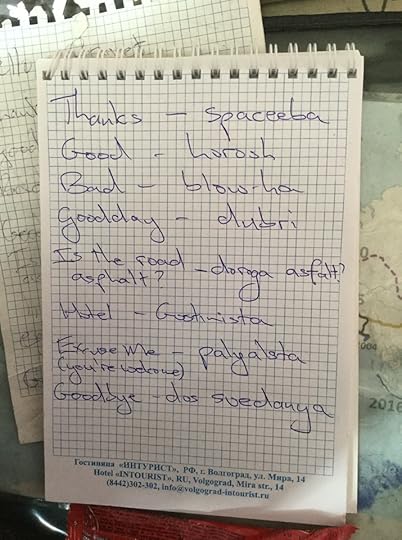 Thanks - spaceeba
Good - horosh
Bad - blow-ha
Goodday - dubri
Is the road - doroga asfalt?
asphalt?
Hotel - Gostinista
Excuse Me - palyalsta
(you're welcome)
Goodbye - dos svedanya
Гостиница «ИНТУРИСТ», РФ, г. Волгоград, ул. Мира, 14
Hotel «INTOURIST», RU, Volgograd, Mira str., 14
(8442)302-302, info@volgograd-intourist.ru
2004
2016